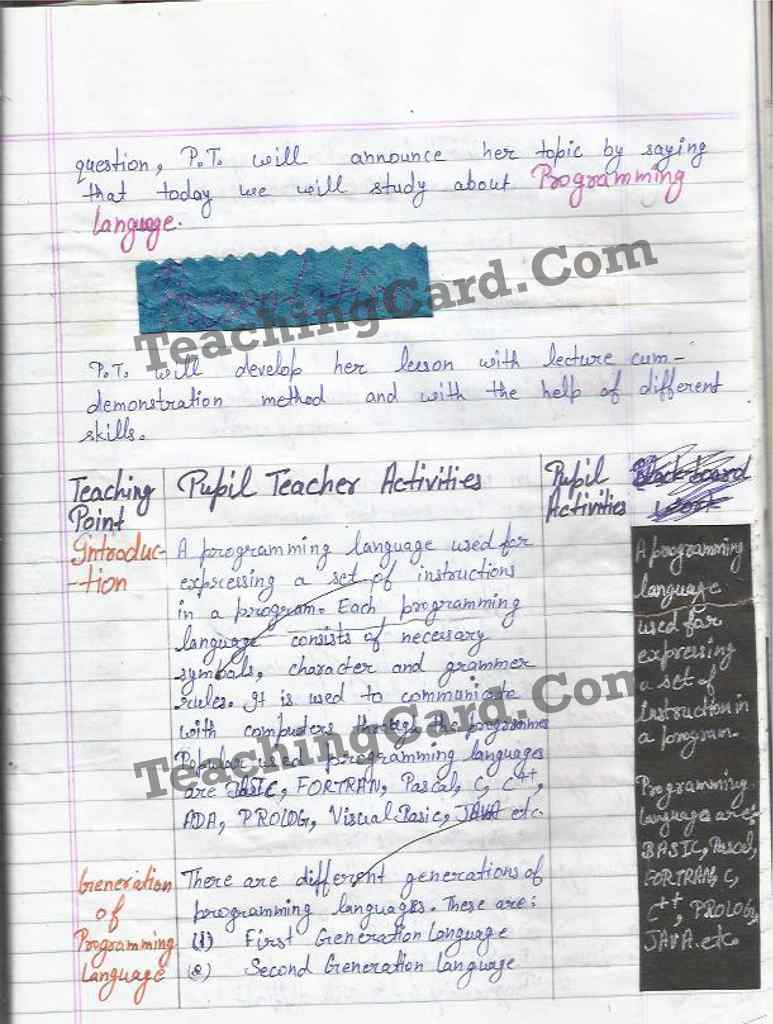 question, P.T. will announce her topic by saying
that today we will study about Programming
Language.
TeachingCard.Com
P.T. will develop her lesson with lecture cum-
demonstration method and with the help of different
skills.
Teaching
Point
Pupil Teacher Activities
Pupil
Activities
Introduc-
-tion
A programming language used for
expressing a set of instructions
in a program. Each programming
language consists of necessary
symbols, character and grammer
rules. It is used to communicate
with computers through the programmes
Popular used programming languages
are BASIC, FORTRAN, Pascal, C, C++,
ADA, PROLOG, Visual Basic, JAVA etc.
TeachingCard.Com
Generation
of
Programming
Language
There are different generations of
programming languages. These are:
(1) First Generation Language
(2) Second Generation Language
A programming
language
used for
expressing
a set of
instruction in
a program.
Programming
language are
BASIC, Pascal,
FORTRAN, C,
C++, PROLOG,
JAVA. etc.